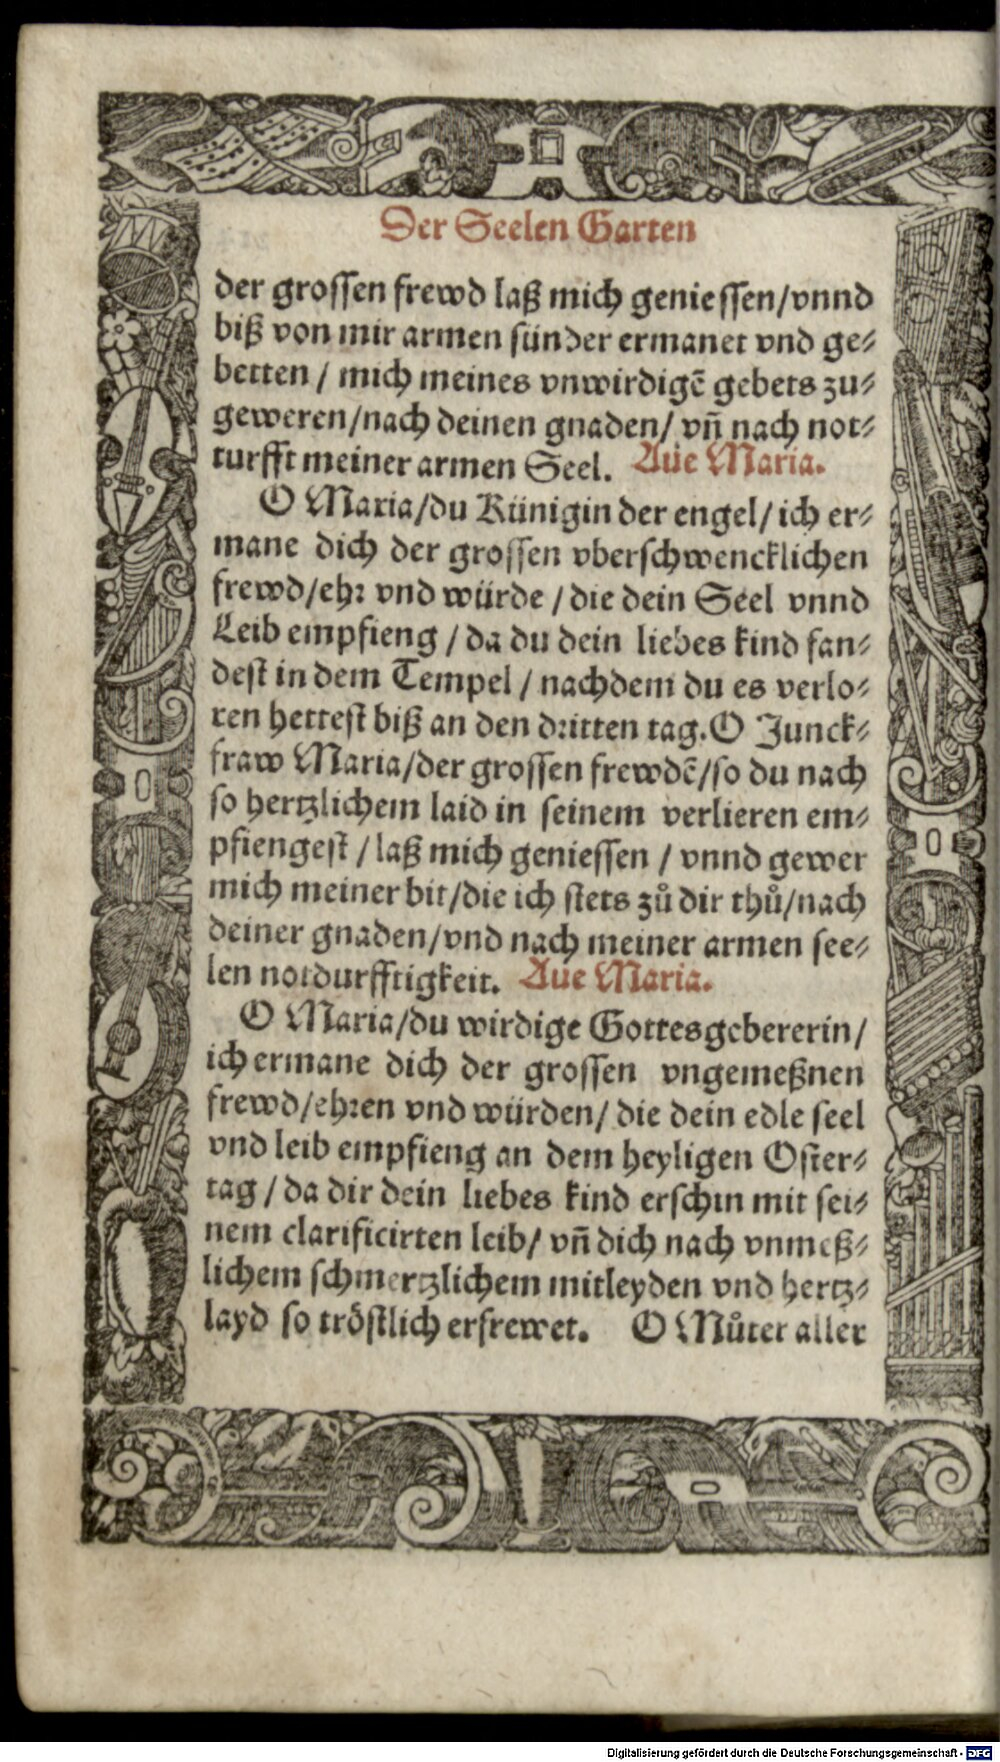 Der Seelen Garten
der grossen frewd laß mich geniessen/vnnd
biß von mir armen sünder ermanet vnd ge⸗
betten / mich meines vnwirdigē gebets zu⸗
geweren/nach deinen gnaden/ vn̄ nach not⸗
turfft meiner armen Seel. Aue Maria.
O Maria/du Künigin der engel/ ich er⸗
mane dich der grossen vberschwencklichen
frewd/ehr vnd würde / die dein Seel vnnd
Leib empfieng / da du dein liebes kind fan⸗
dest in dem Tempel / nachdem du es verlo⸗
ren hettest biß an den dritten tag. O Junck⸗
fraw Maria/der grossen frewdē/so du nach
so hertzlichem laid in seinem verlieren em⸗
pfiengest / laß mich geniessen / vnnd gewer
mich meiner bit/die ich stets zů dir thů/nach
deiner gnaden/vnd nach meiner armen see⸗
len notdurfftigkeit. Aue Maria.
O Maria/du wirdige Gottesgebererin/
ich ermane dich der grossen vngemeßnen
frewd/ehren vnd würden/ die dein edle seel
vnd leib empfieng an dem heyligen Oster⸗
tag / da dir dein liebes kind erschin mit sei⸗
nem clarificirten leib/ vn̄ dich nach vnmeß⸗
lichem schmertzlichem mitleyden vnd hertz⸗
layd so tröstlich erfrewet. O Můter aller
Digitalisierung gefördert durch die Deutsche Forschungsgemeinschaft - DFG